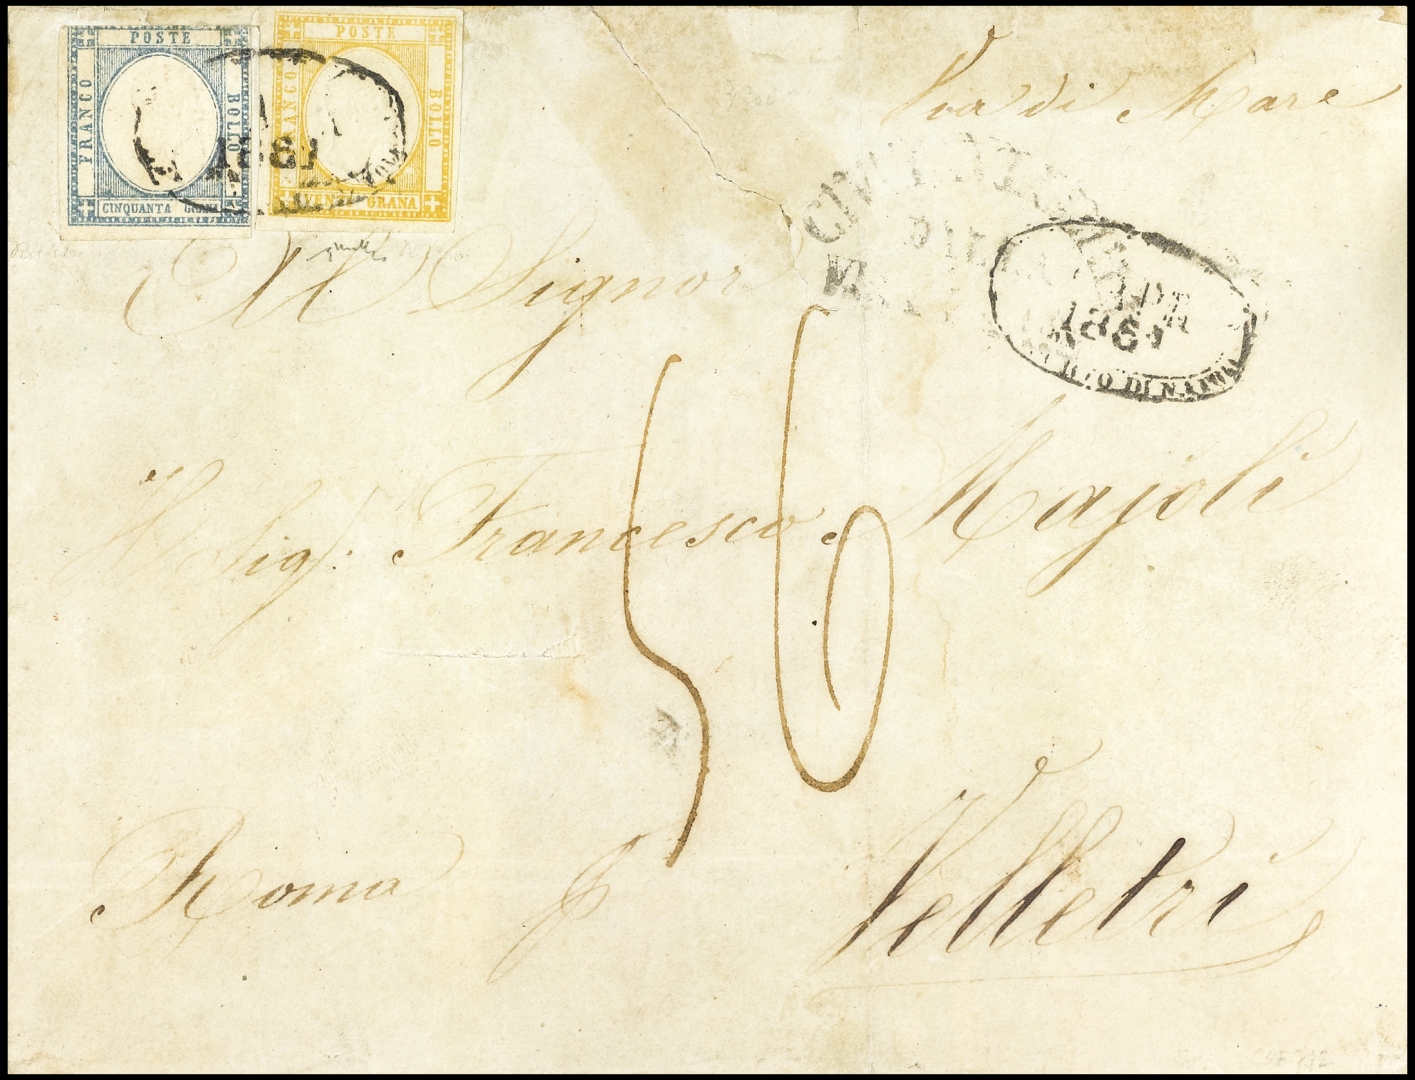 POSTE
FRANCO
BOLLO
CINQUANTA GRANA
POSTE
FRANCO
BOLLO
VENTI GRANA
1861
Via di Mare
1861
PORTO DI NAPOLI
Al Signor
Il Sig.r Francesco Majoli
56
Roma p
Velletri